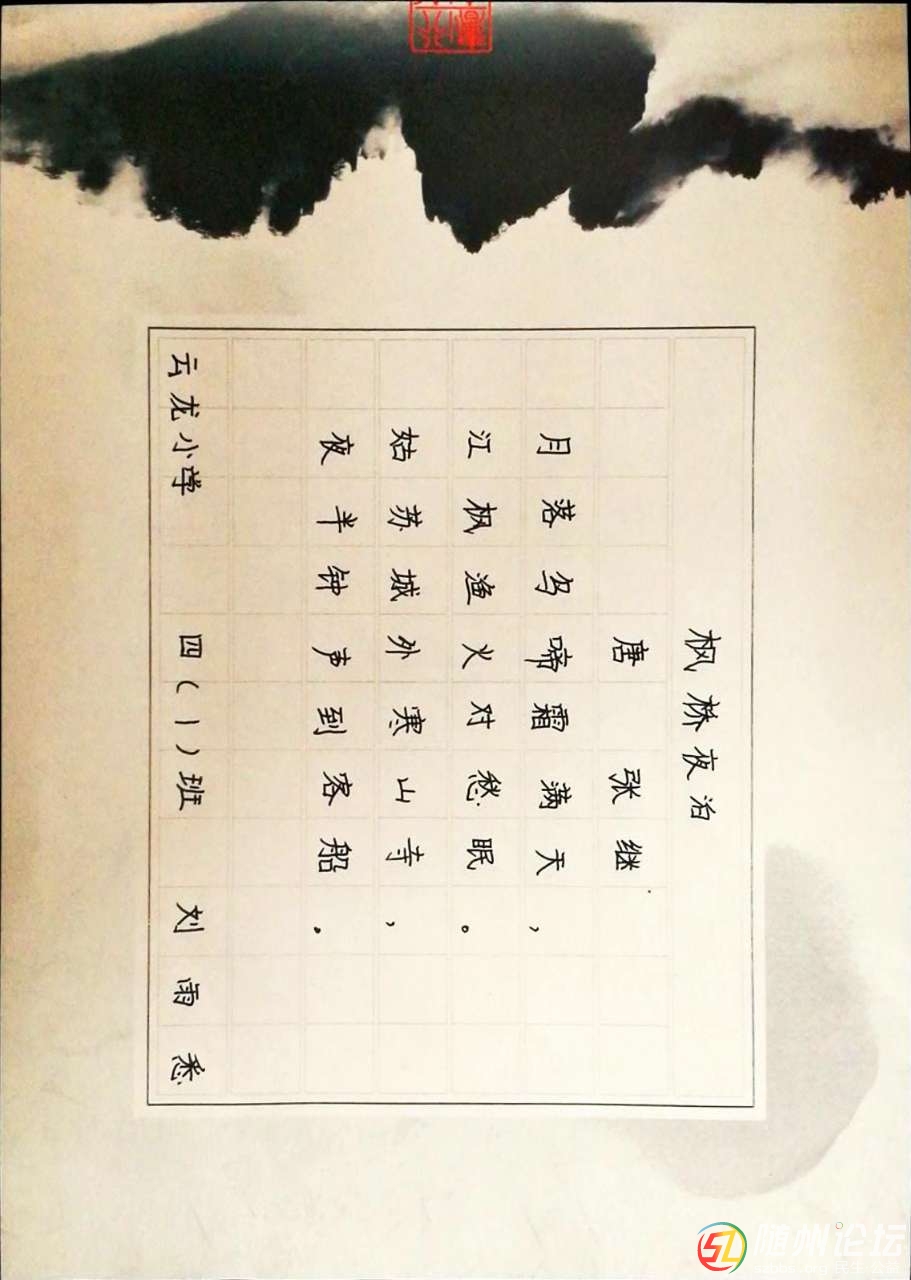 枫桥夜泊
唐 张继
月落乌啼霜满天，
江枫渔火对愁眠。
姑苏城外寒山寺，
夜半钟声到客船。
云龙小学 四(1)班 刘雨悉
随州论坛